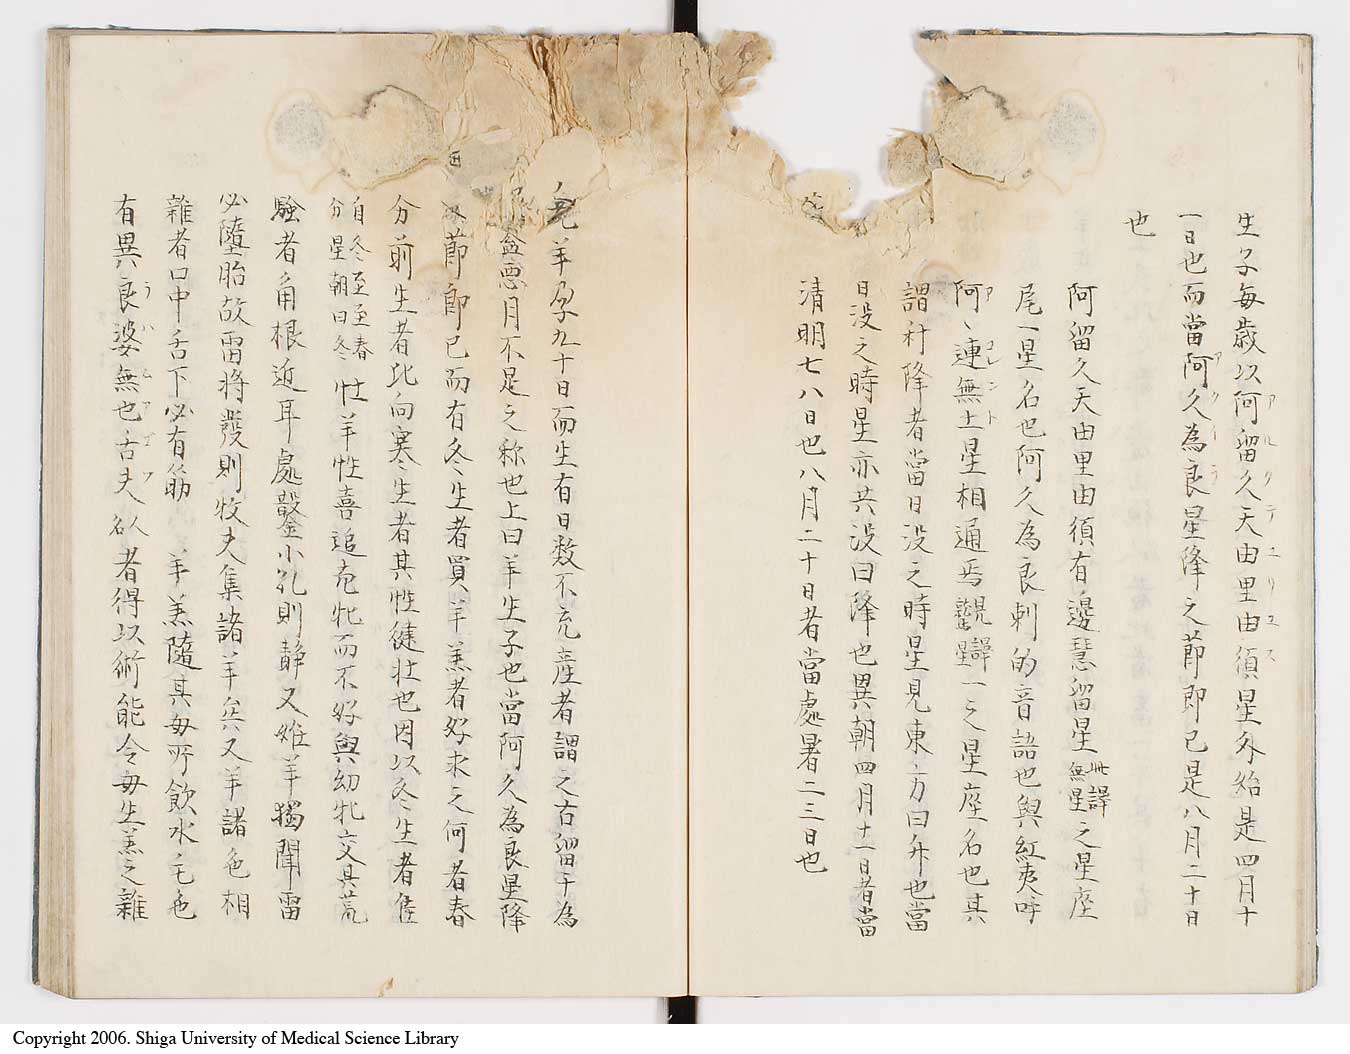 生子每歳以阿留久天由里由須星外始是四月十
アルクテユリユス
一日也而當阿久為良星降之節即已是八月二十日
アクイラ
也
阿留久天由里由須有邊慧留星此譯無星之星座
尾一星名也阿久為良剌的音語也與紅夷呼
阿、連無土星相通焉譯一之星座名也其
アレント
謂升降者當日没之時星見東方曰升也當
日没之時星亦共没曰降也異朝四月十一日者當
清明七八日也八月二十日者當處暑二三日也
羊孕九十日而生有日数不充產者謂之古留干為
盆悪月不足之称也上曰羊生子也當阿久為良星降
節即已而有冬生者買羊羔者好求之何者春
分前生者比向寒生者其性健壮也因以冬生者隹
自冬至至春分星朝曰冬牡羊性喜追老牝而不好與幼牝交其荒
騷者角根近耳處鑿小孔則静又雉羊獨聞雷
必墮胎故雷将發則牧夫集諸羊矣又羊諸色相
雜者口中舌下必有筋 羊羔隨其毋所飲水毛色
有異良婆無也古夫以者得以術能令毋生羔之雜
ラハムアゴフ
Copyright 2006. Shiga University of Medical Science Library